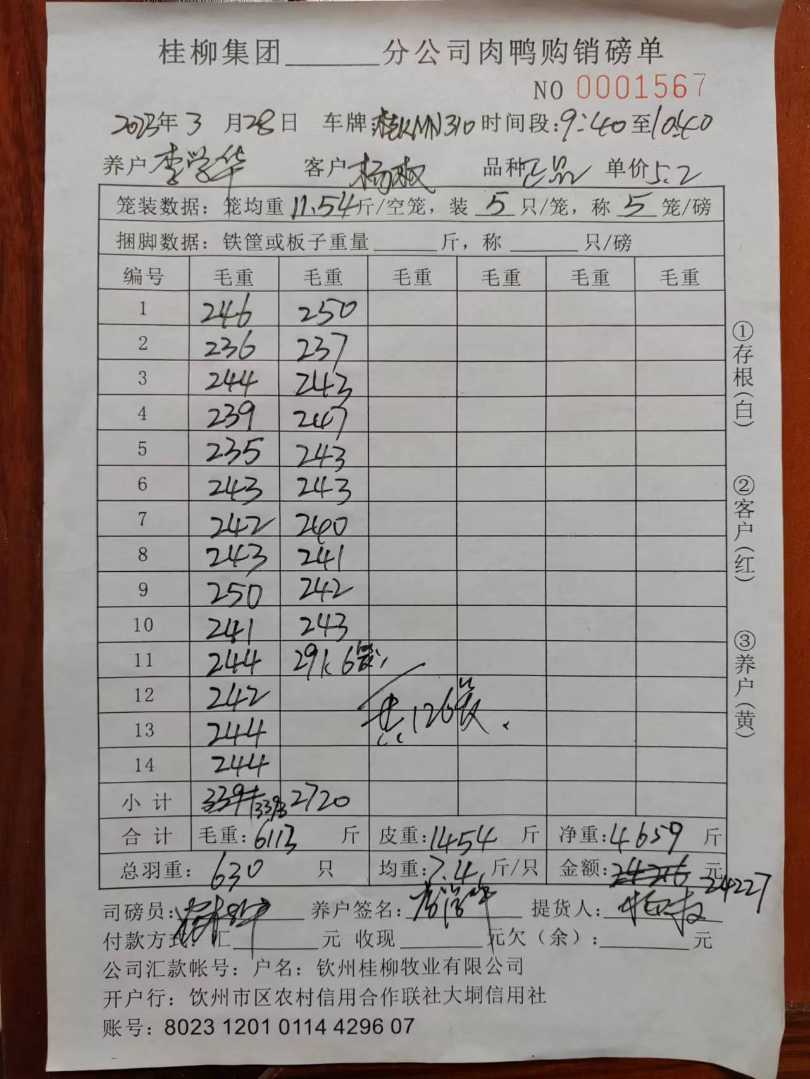 桂柳集团______分公司肉鸭购销磅单
NO 0001567
2023年3月28日 车牌 桂KMN310 时间段:9:40至10:40
养户 李学华 客户 杨 品种 正品 单价 5.2
笼装数据：笼均重 11.54 斤/空笼，装 5 只/笼，称 5 笼/磅
捆脚数据：铁筐或板子重量______斤，称______只/磅
编号 毛重 毛重 毛重 毛重 毛重 毛重
1 246 250
2 236 237
3 244 243
4 239 247
5 235 243
6 243 243
7 242 240
8 243 241
9 250 242
10 241 243
11 244 291 6笼
12 242 共126笼
13 244
14 244
小计 3394 3393 2720
合计 毛重:6113 斤 皮重:1454 斤 净重:4659 斤
总羽重：630 只 均重:7.4 斤/只 金额: 元 24227
司磅员: 养户签名: 李学华 提货人:
付款方式：汇______元 收现______元欠（余）:______元
公司汇款帐号：户名：钦州桂柳牧业有限公司
开户行：饮州市区农村信用合作联社大垌信用社
账号：8023 1201 0114 4296 07
①存根(白)
②客户(红)
③养户(黄)